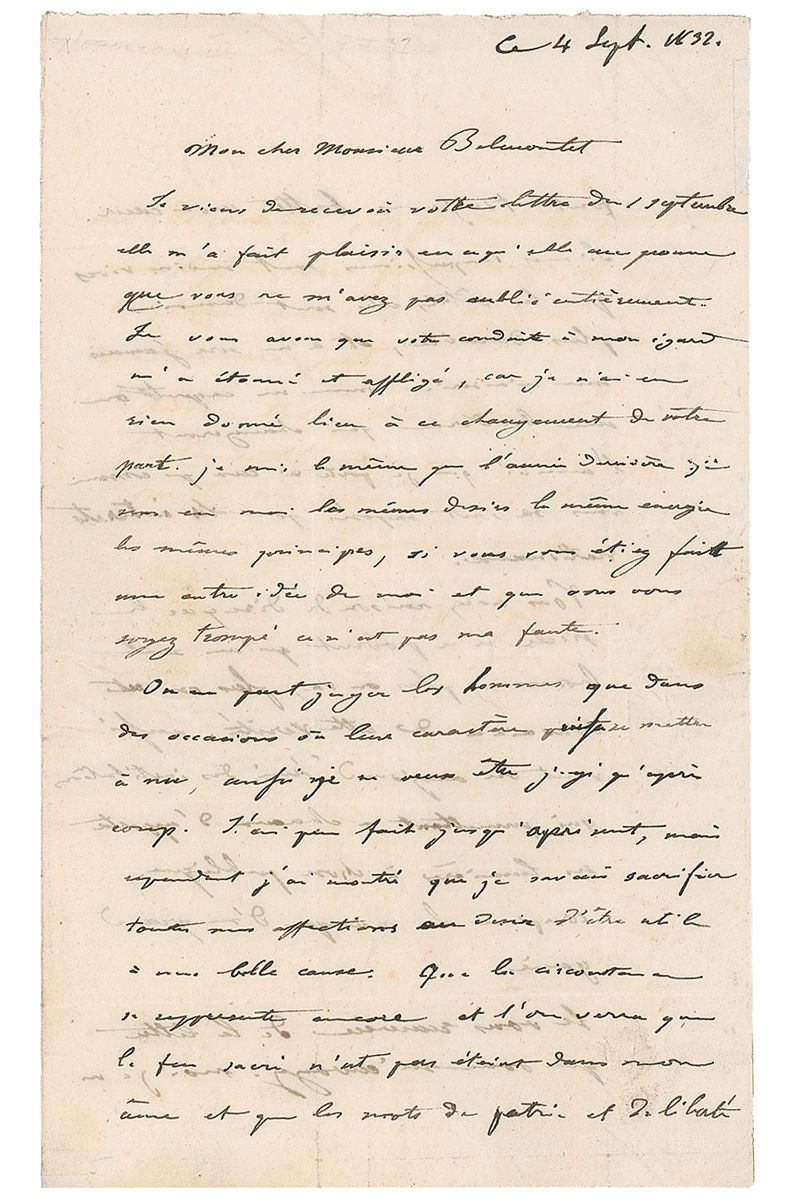 Ce 4 Sept. 1832.
Mon cher Monsieur Belmontet
Je viens de recevoir votre lettre du 1 septembre
elle m'a fait plaisir en ce qu'elle me prouve
que vous ne m'avez pas oublié entièrement.
Je vous avoue que votre conduite à mon égard
m'a étonné et affligé, car je n'ai en
rien donné lieu à ce changement de votre
part. je suis le même que l'année dernière j'ai
en moi les mêmes désirs la même énergie
les mêmes principes, si vous vous étiez fait
une autre idée de moi et que vous vous
soyez trompé ce n'est pas ma faute.
On ne peut juger les hommes que dans
des occasions où leur caractère puisse se mettre
à nu, aussi je ne veux être jugé qu'après
coup. J'ai peu fait jusqu'à présent, mais
cependant j'ai montré que je savais sacrifier
toutes mes affections au désir d'être utile
à une belle cause. Que la circonstance
se représente encore et l'on verra que
le feu sacré n'est pas éteint dans mon
âme et que les mots de patrie et de liberté